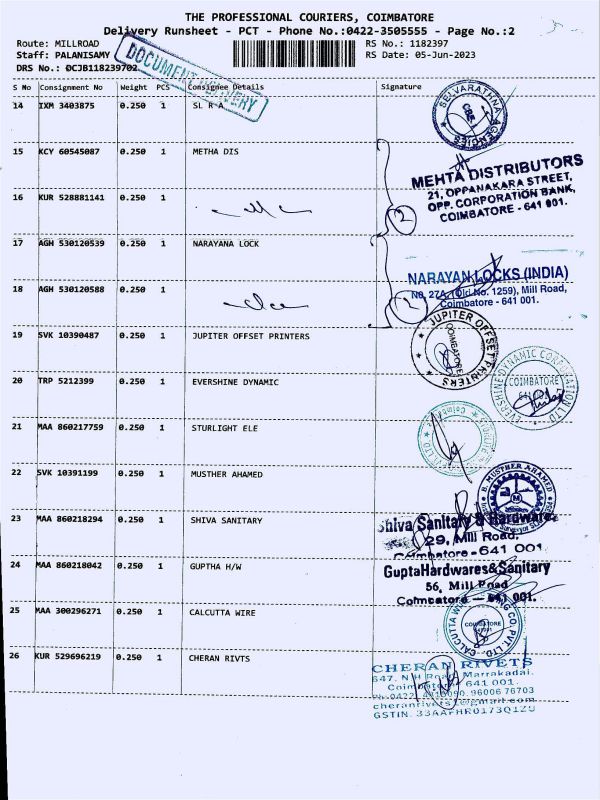 THE PROFESSIONAL COURIERS, COIMBATORE
Delivery Runsheet - PCT - Phone No.:0422-3505555 - Page No.:2
Route: MILLROAD RS No.: 1182397
Staff: PALANISAMY RS Date: 05-Jun-2023
DRS No.: 0CJB118239702
DOCUMENT DELIVERY
S No Consignment No Weight PCS Consignee Details Signature
14 IXM 3403875 0.250 1 SL R A
SELVARATHNA AGENCIES
CBE
15 KCY 60545087 0.250 1 METHA DIS
MEHTA DISTRIBUTORS
21, OPPANAKARA STREET,
OPP. CORPORATION BANK,
COIMBATORE - 641 001.
16 KUR 528881141 0.250 1
2
17 AGH 530120539 0.250 1 NARAYANA LOCK
NARAYAN LOCKS (INDIA)
No. 27A, (Old No. 1259), Mill Road,
Coimbatore - 641 001.
18 AGH 530120588 0.250 1
2
19 SVK 10390487 0.250 1 JUPITER OFFSET PRINTERS
JUPITER OFFSET PRINTERS
COIMBATORE
20 TRP 5212399 0.250 1 EVERSHINE DYNAMIC
EVERSHINE DYNAMIC CORPORATION LTD
COIMBATORE
21 MAA 860217759 0.250 1 STURLIGHT ELE
22 SVK 10391199 0.250 1 MUSTHER AHAMED
B. MUSTHER AHAMED
23 MAA 860218294 0.250 1 SHIVA SANITARY
Shiva Sanitary & Hardware
29, Mill Road,
Coimbatore - 641 001
24 MAA 860218042 0.250 1 GUPTHA H/W
Gupta Hardwares & Sanitary
56, Mill Road
Coimbatore - 641 001.
25 MAA 300296271 0.250 1 CALCUTTA WIRE
COIMBATORE
26 KUR 529696219 0.250 1 CHERAN RIVTS
CHERAN RIVETS
647, N H Road, Marrakadai.
Coimbatore 641 001.
96006 76703
GSTIN.